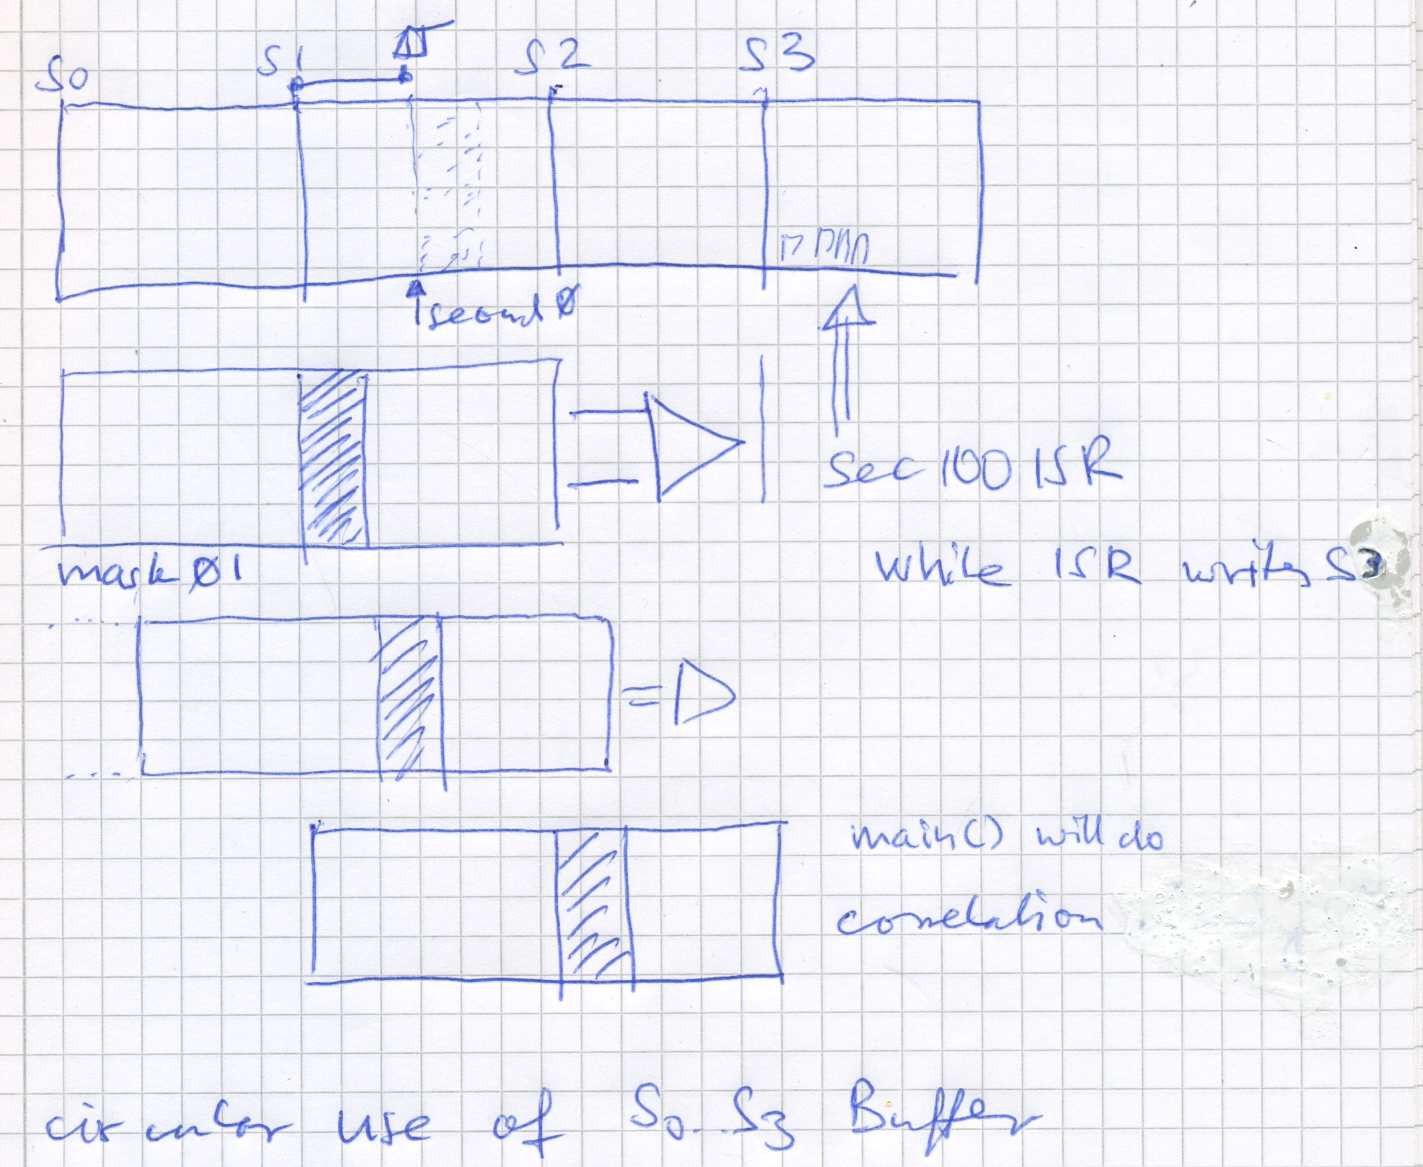 S0 S1 S2 S3
second 0
sec 100 ISR
mask 01
while ISR writes S3
main() will do
correlation
circular use of S0..S3 Buffer